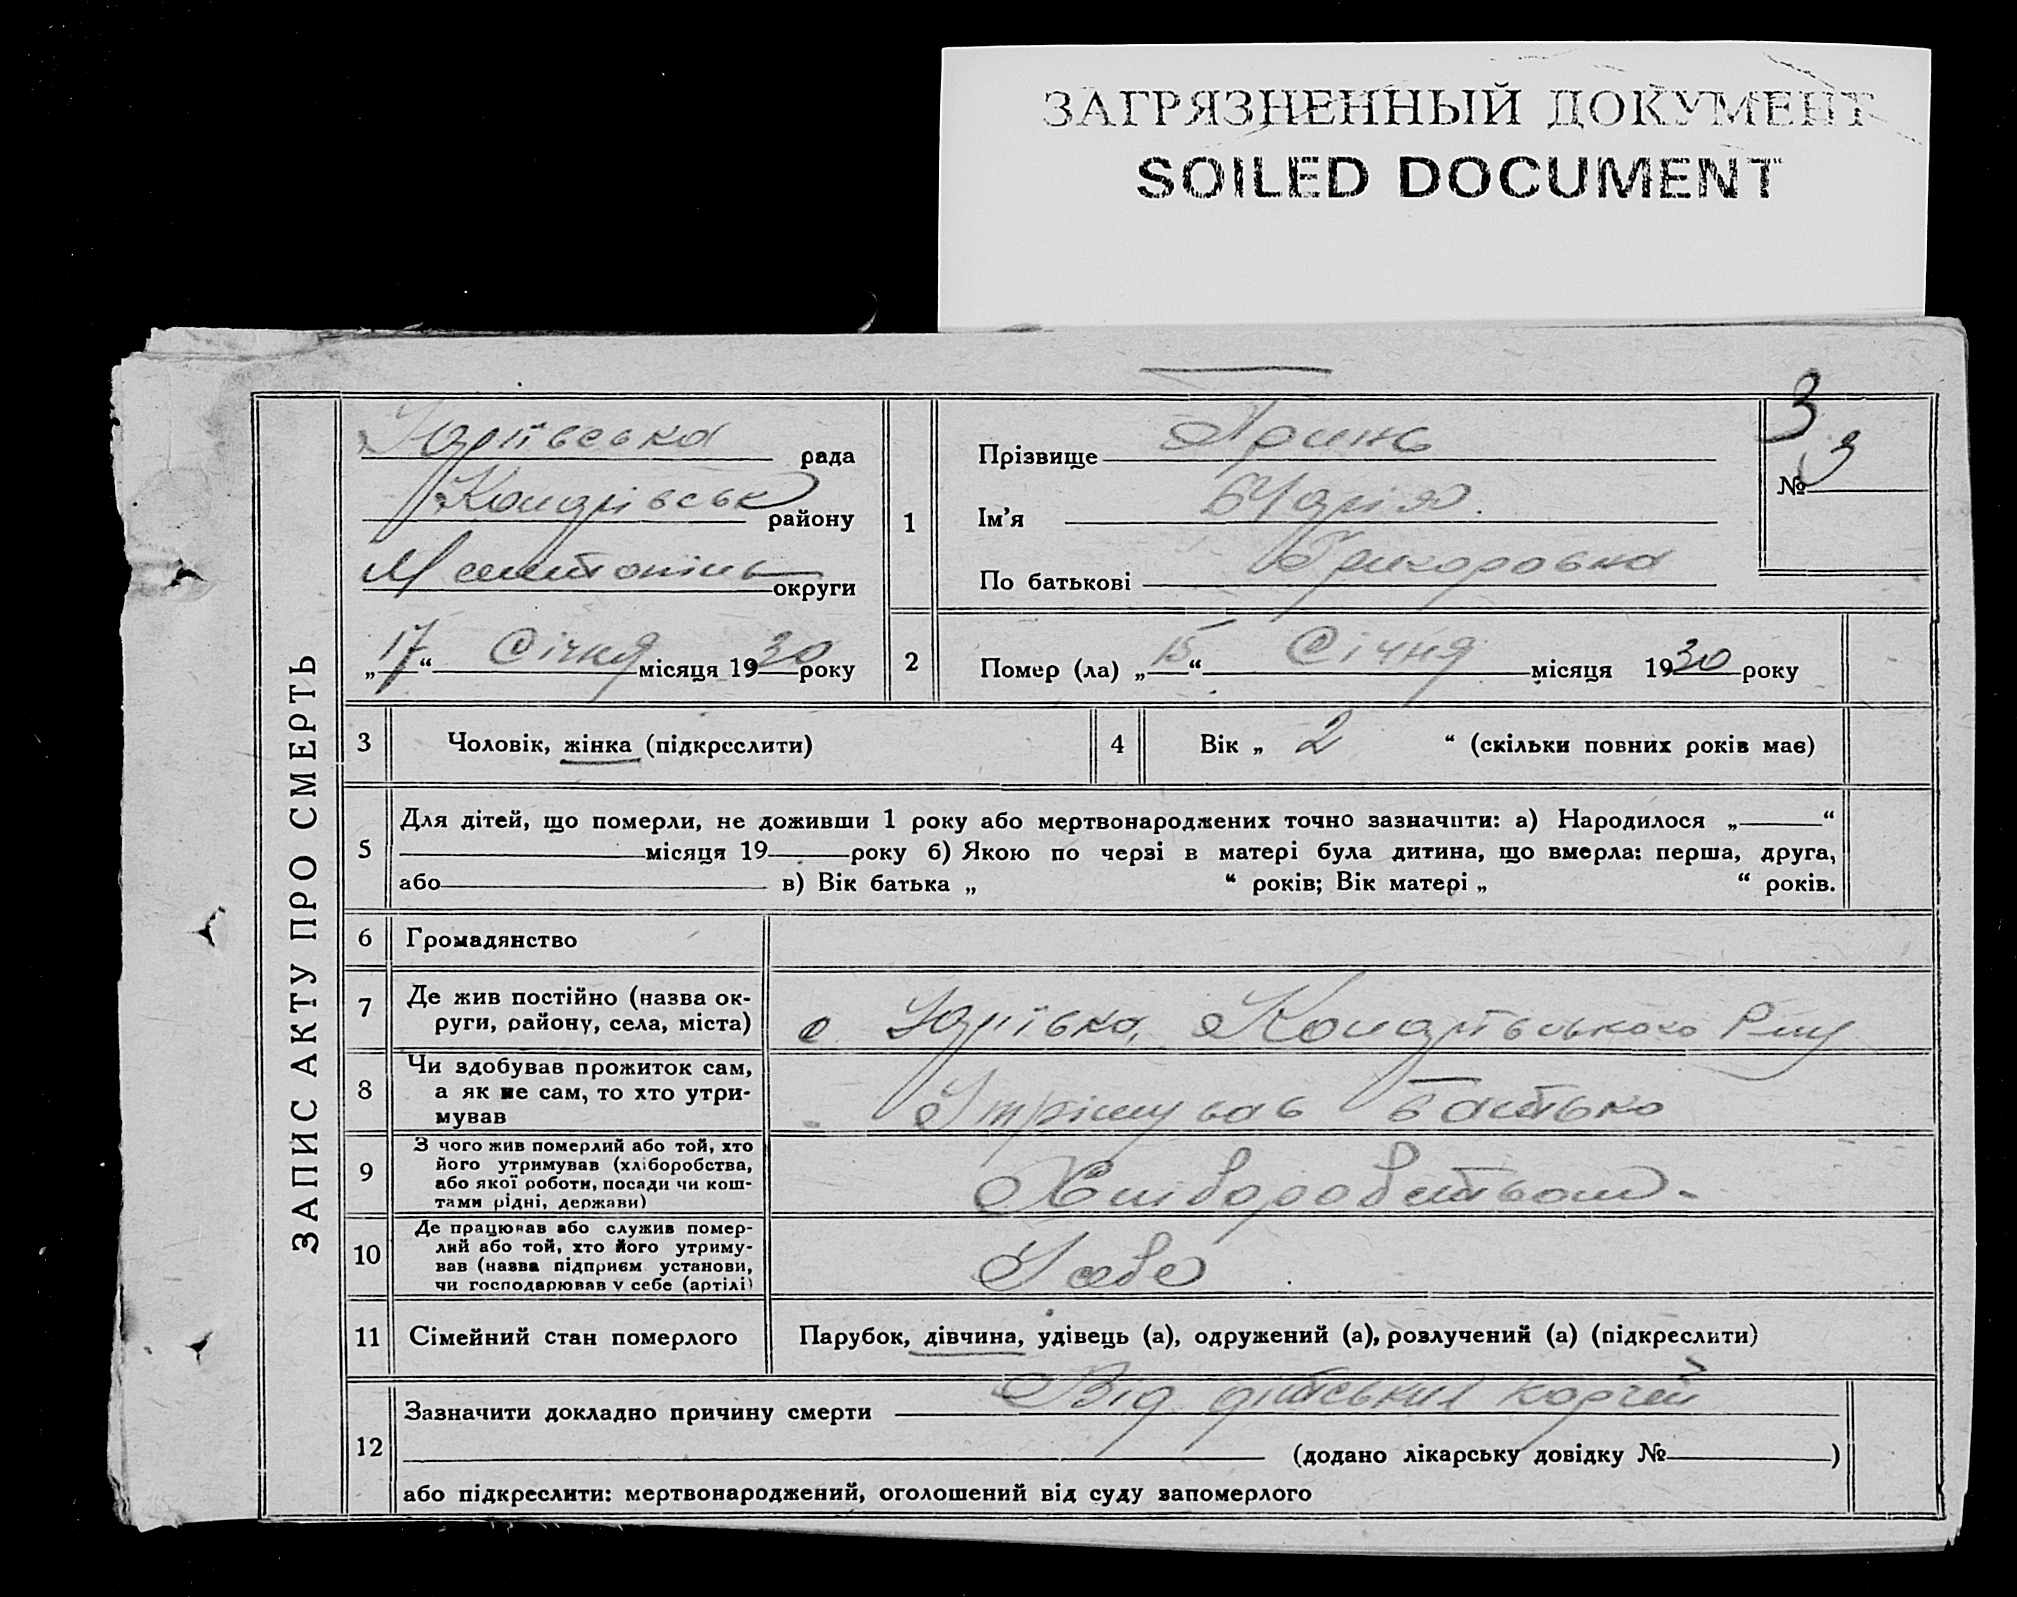 ЗАГРЯЗНЕННЫЙ ДОКУМЕНТ
SOILED DOCUMENT
ЗАПИС АКТУ ПРО СМЕРТЬ
Юріївська рада
району
округи
„17“ Січня місяця 1930 року
1
Прізвище Гринь
Ім'я Марія
По батькові Григоровна
3
№ 3
2 Помер (ла) „15“ Січня місяця 1930 року
3 Чоловік, жінка (підкреслити)
4 Вік „ 2 “ (скільки повних років має)
5 Для дітей, що померли, не доживши 1 року або мертвонароджених точно зазначити: а) Народилося „ “
місяця 19 року б) Якою по черзі в матері була дитина, що вмерла: перша, друга,
або в) Вік батька „ “ років; Вік матері „ “ років.
6 Громадянство
7 Де жив постійно (назва ок-
руги, району, села, міста)
с Юріївка,
8 Чи здобував прожиток сам,
а як не сам, то хто утри-
мував
батько
9 З чого жив померлий або той, хто
його утримував (хліборобства,
або якої роботи, посади чи кош-
тами рідні, держави)
Хліборобством
10 Де працював або служив помер-
лий або той, хто його утриму-
вав (назва підприєм установи,
чи господарював у себе (артілі)
У себе
11 Сімейний стан померлого
Парубок, дівчина, удівець (а), одружений (а), розлучений (а) (підкреслити)
12 Зазначити докладно причину смерти Від дітських корчей
(додано лікарську довідку № )
або підкреслити: мертвонароджений, оголошений від суду запомерлого